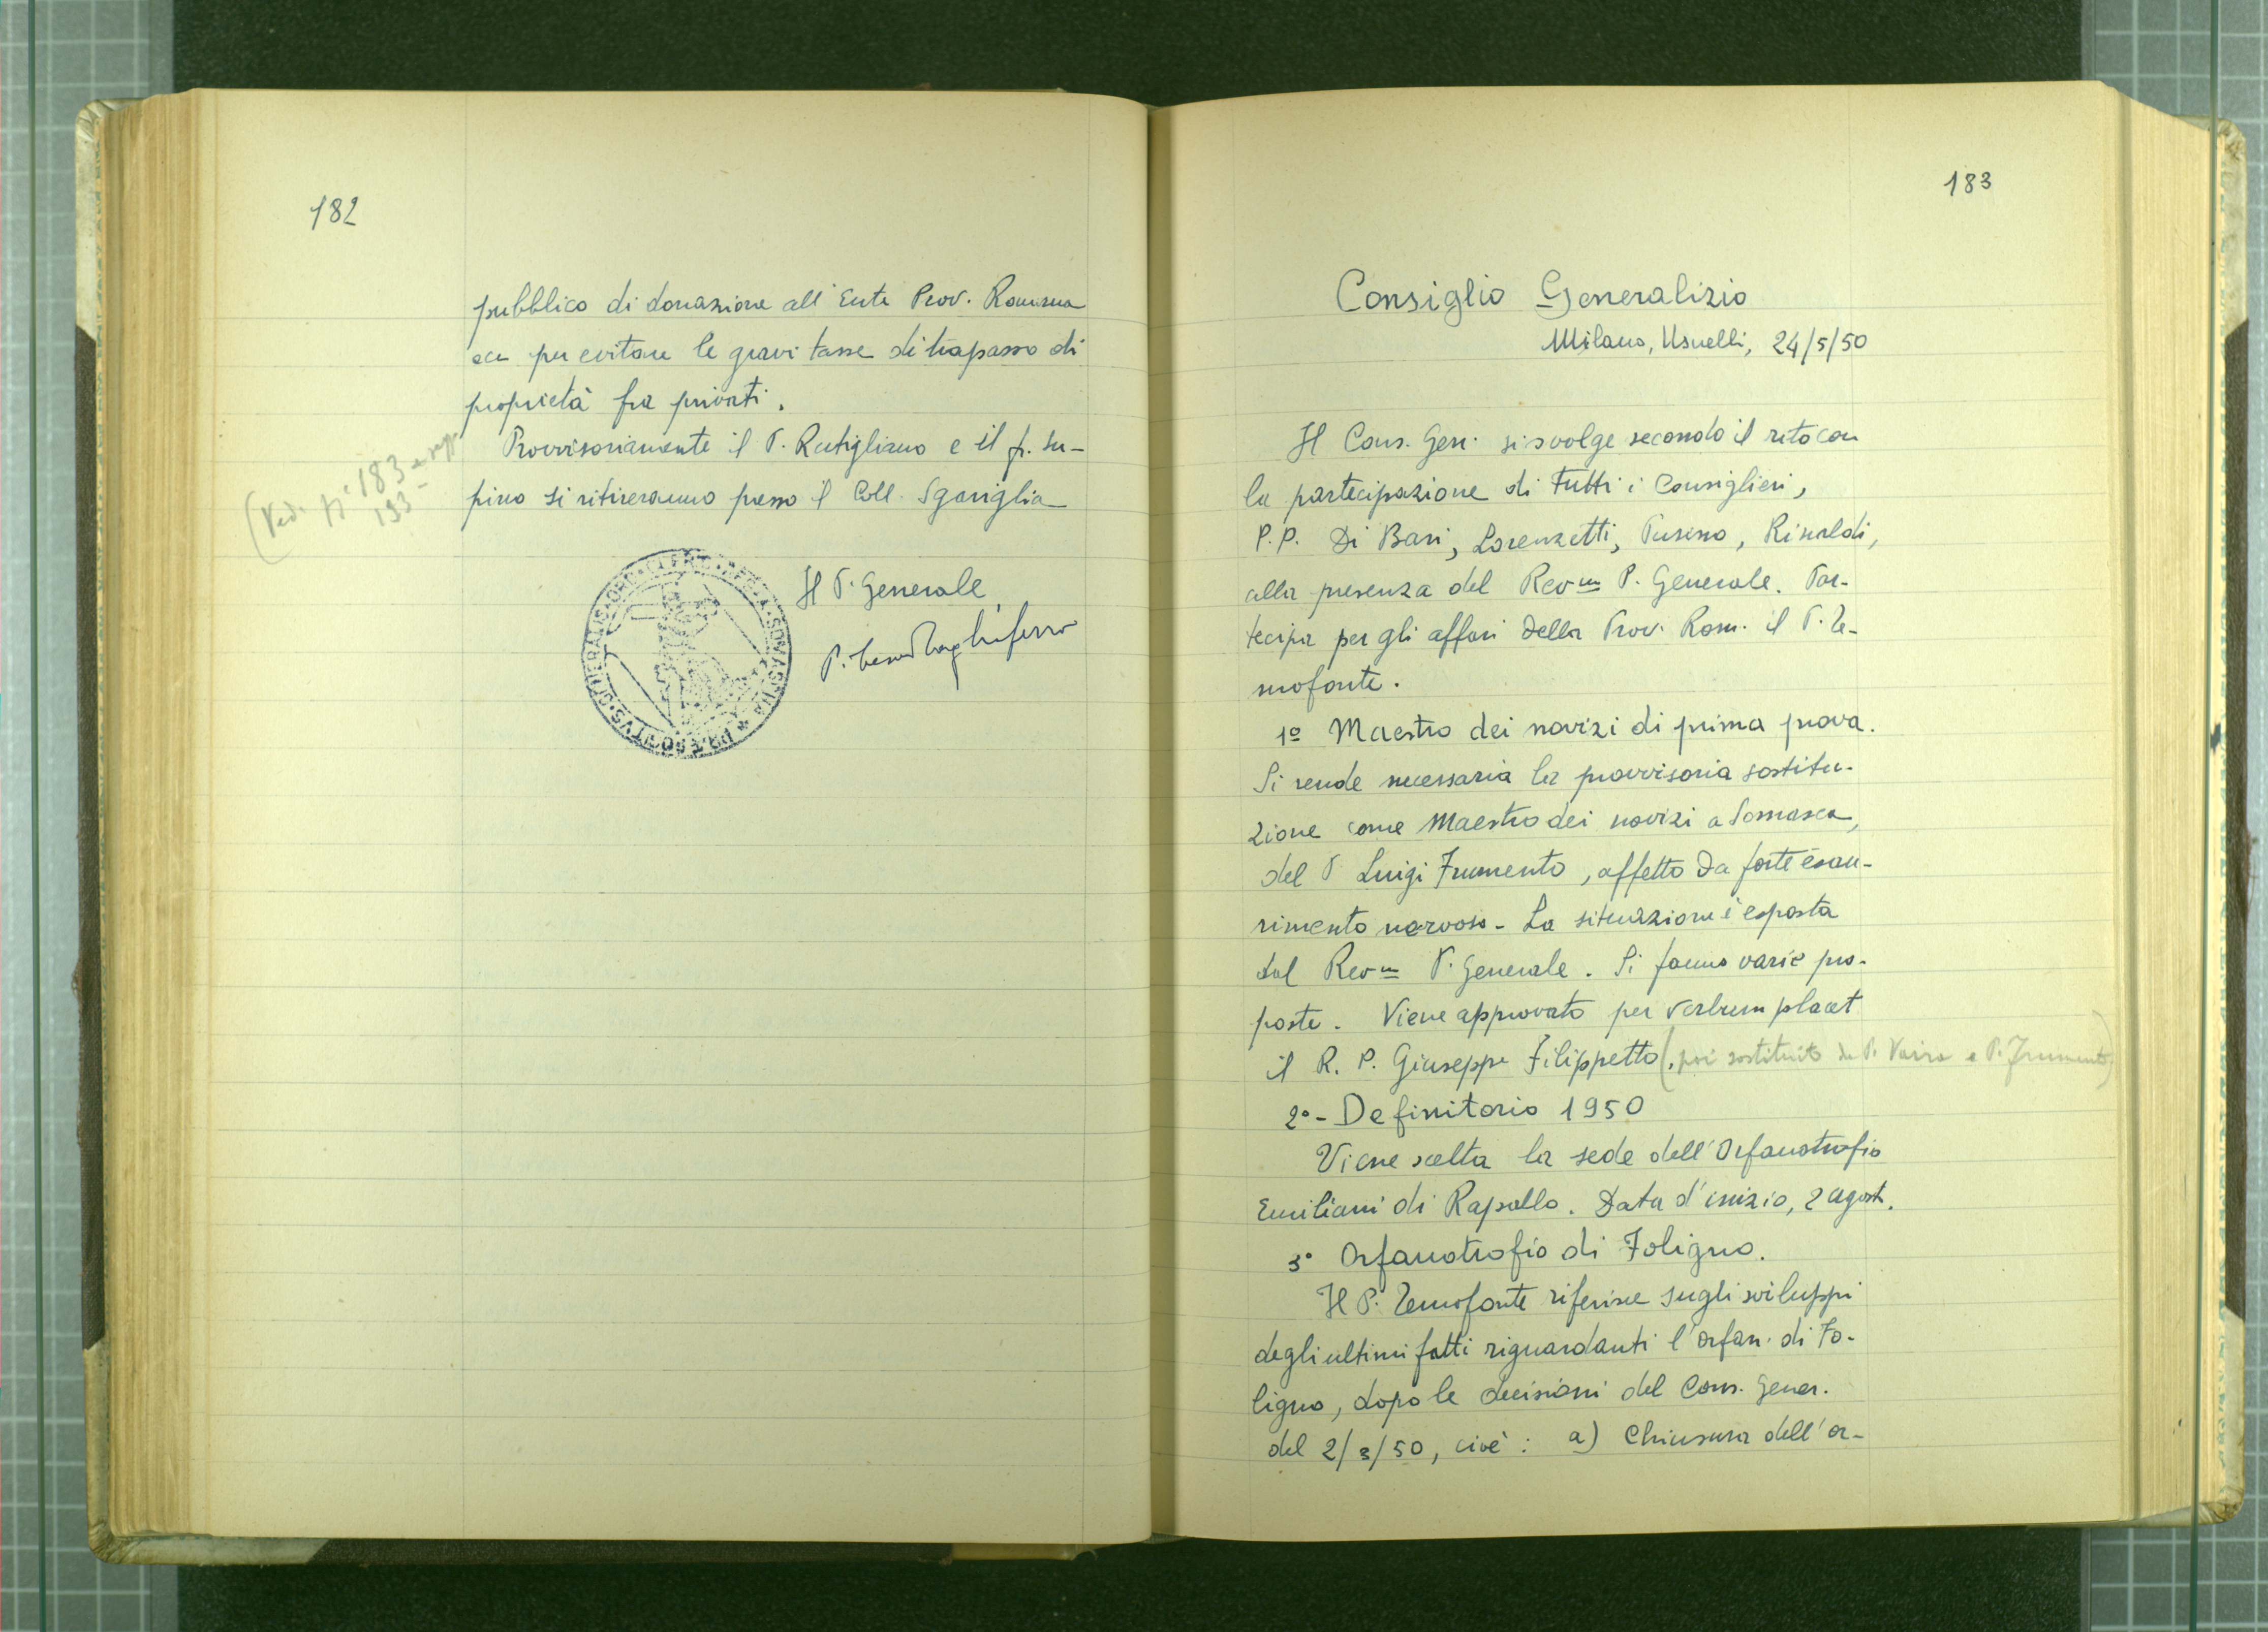 182
pubblico di donazione all'Ente Prov. Romana
ecc per evitare le gravi tasse di trapasso di
proprietà fra privati.
Provvisoriamente il P. Rutigliano e il fr. Su-
pino si ritireranno presso il Coll. Sgariglia
(Vedi N° 183 e segg.
193-
Il P. Generale
P. Tagliaferro
183
Consiglio Generalizio
Milano, Usuelli, 24/5/50
Il Cons. Gen. si svolge secondo il rito con
la partecipazione di tutti i Consiglieri,
P.P. Di Bari, Lorenzetti, Tuseno, Rinaldi,
alla presenza del Rev.m P. Generale. Par-
tecipa per gli affari della Prov. Rom. il P. Ze-
nofonte.
1º Maestro dei novizi di prima prova.
Si rende necessaria la provvisoria sostitu-
zione come Maestro dei novizi a Somasca,
del P Luigi Frumento, affetto da forte esau-
rimento nervoso - La situazione è esposta
dal Rev.m P. Generale. Si fanno varie pro-
poste. Viene approvato per verbum placet
il R. P. Giuseppe Filippetto (poi sostituito da P. Vaira e P. Frumento)
2º - Definitorio 1950
Viene scelta la sede dell'Orfanotrofio
Emiliani di Rapallo. Data d'inizio, 2 agost.
3º Orfanotrofio di Foligno.
Il P. Zenofonte riferisce sugli sviluppi
degli ultimi fatti riguardanti l'orfan. di Fo-
ligno, dopo le decisioni del Cons. Gener.
del 2/3/50, cioè: a) Chiusura dell'or-